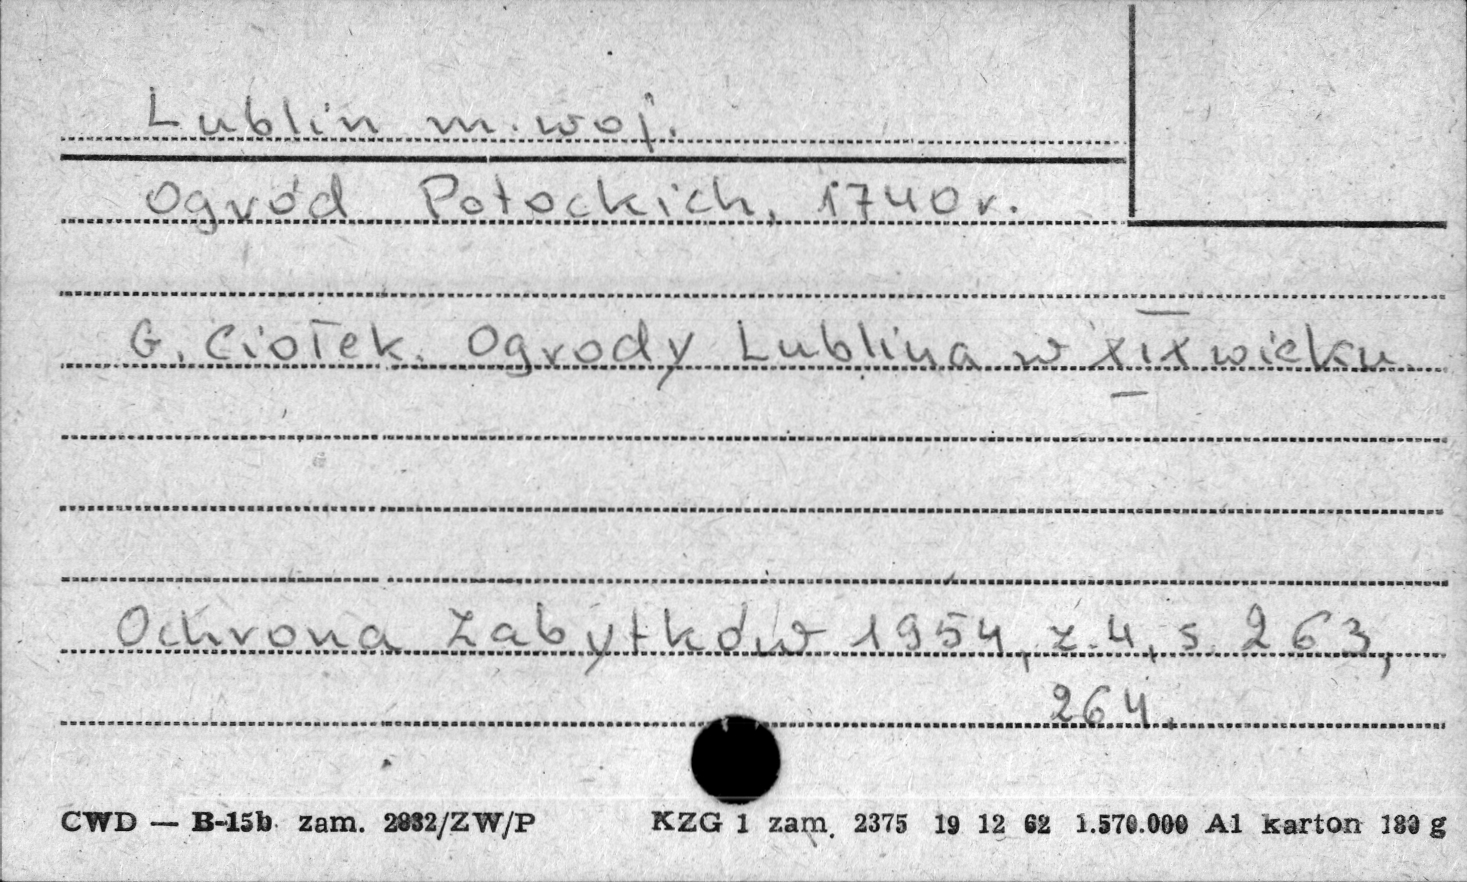 Lublin m. woj.
Ogród Potockich, 1740 r.
G. Ciołek. Ogrody Lublina w XIX wieku
Ochrona Zabytków 1954, z. 4, s. 263,
264.
CWD — B-15b zam. 2832/ZW/P KZG 1 zam. 2375 19 12 62 1.570.000 A1 karton 180 g